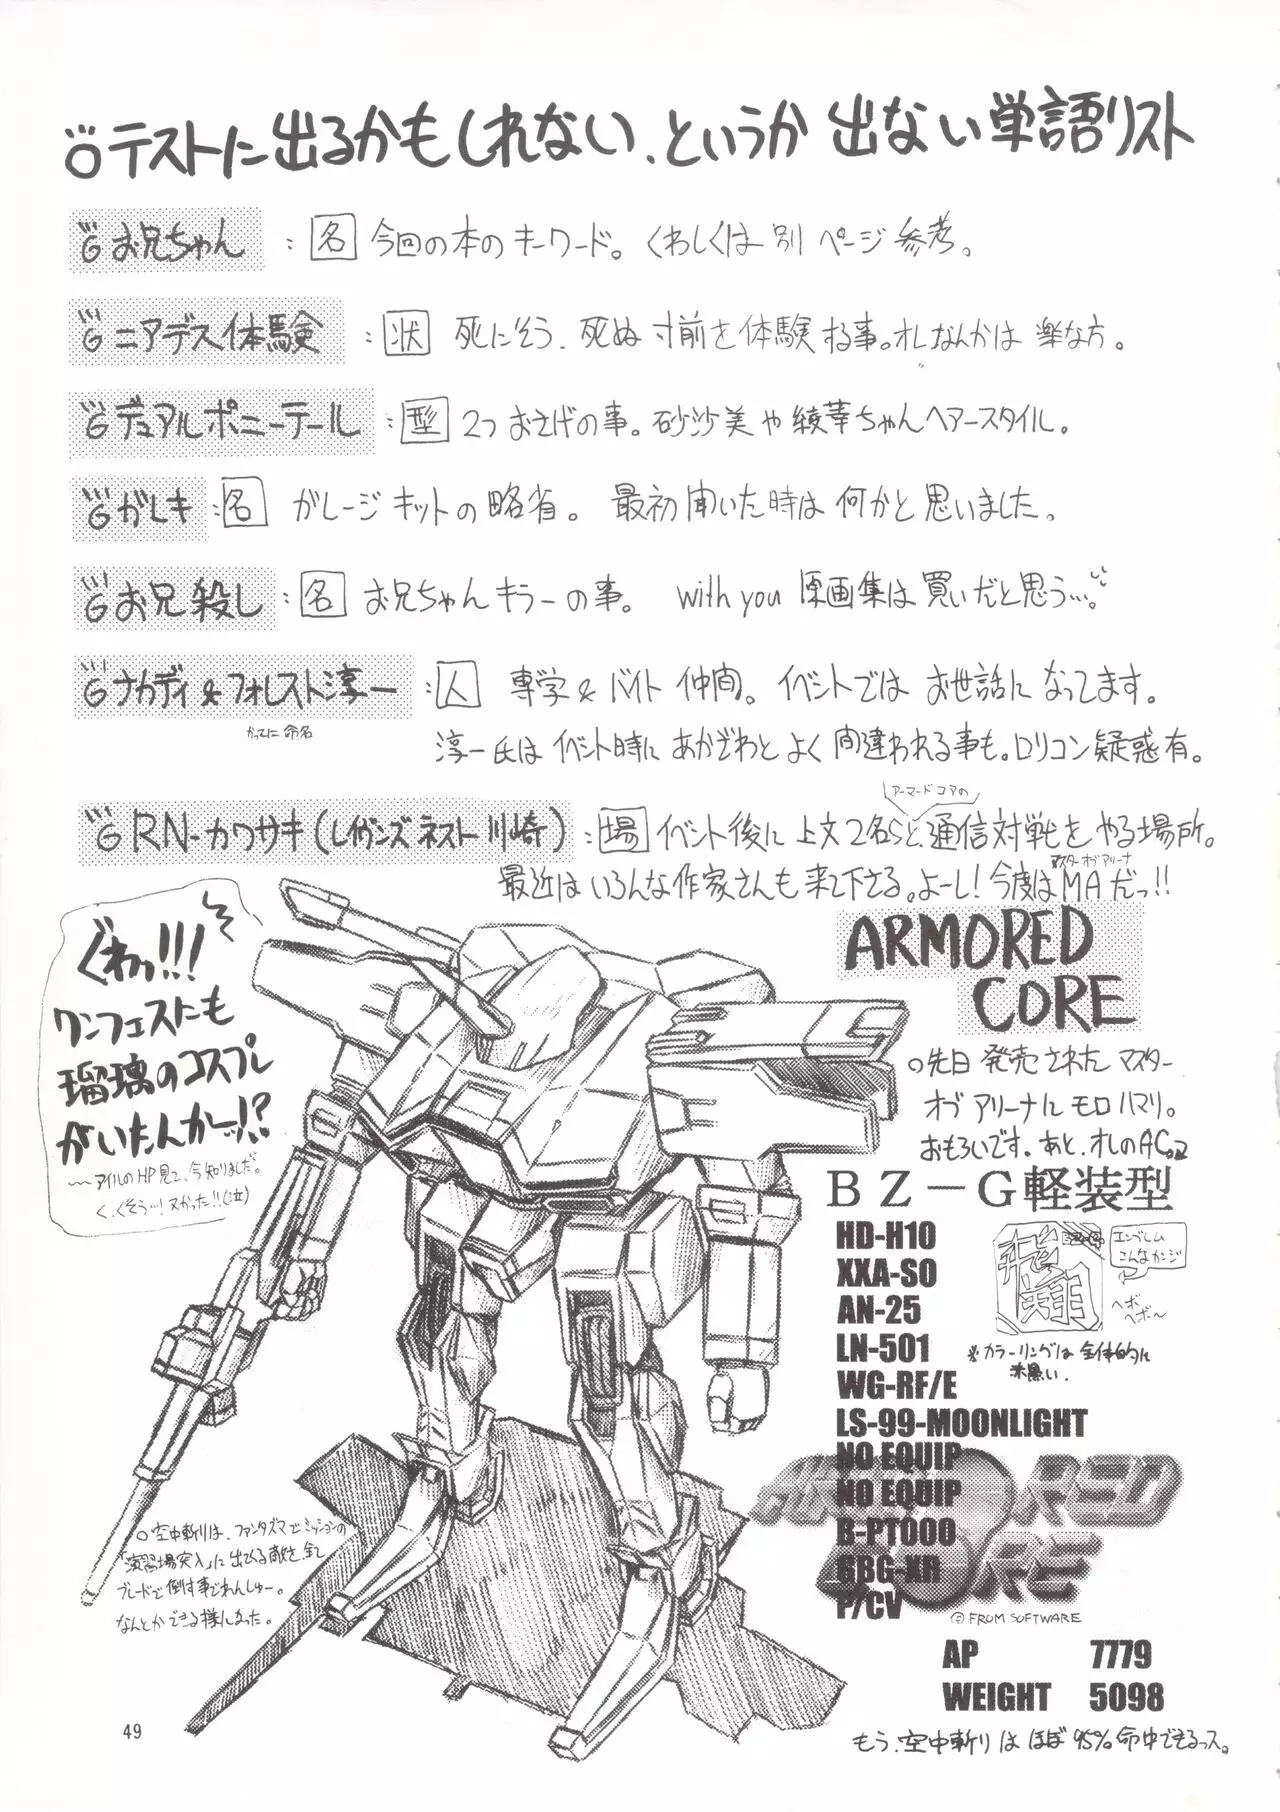 テストに出るかもしれない、というか 出ない単語リスト
お兄ちゃん：名 今回の本のキーワード。くわしくは 別ページ参考。
ニアデス体験：状 死にそう、死ぬ寸前を体験する事。オレなんかは 楽な方。
デュアルポニーテール：型 2つおさげの事。砂沙美や綾華ちゃんヘアースタイル。
がレキ：名 ガレージキットの略省。 最初聞いた時は何かと思いました。
お兄殺し：名 お兄ちゃんキラーの事。 with you 原画集は買いだと思う…。
ナカディ&フォレスト淳一：人 専学&バイト仲間。イベントではお世話になってます。
かってに命名
淳一氏はイベント時にあかざわとよく間違われる事も。ロリコン疑惑有。
アーマードコアの
RN-カワサキ(レイヴンズネスト川崎)：場 イベント後に上文2名らと、通信対戦をやる場所。
マスターオブアリーナ
最近はいろんな作家さんも来て下さる。よーし！今度はMAだっ!!
ぐわっ!!!
ワンフェスにも
瑠璃のコスプレ
がいたんかーッ!?
～アイルのHP見て、今知りました。
く、くそぅ…！ヌかった!!(泣)
ARMORED
CORE
○先日発売されたマスター
オブアリーナにモロハマリ。
おもろいです。あと、オレのAC。
BZ－G軽装型
HD-H10
XXA-SO
AN-25
LN-501
WG-RF/E
LS-99-MOONLIGHT
NO EQUIP
NO EQUIP
B-PT000
GBG-XR
P/CV
飛翔
エンブレム
こんなカンジ
ヘボン
ヘボ～
※カラーリングは全体的に
赤黒い。
ARMORED
CORE
© FROM SOFTWARE
AP 7779
WEIGHT 5098
もう、空中斬りはほぼ95%命中できるっス。
○空中斬りは、ファンタズマでミッションの
「演習場突入」に出てくる敵を、全て
ブレードで倒す事でれんしゅー。
なんとかできる様になった。
49